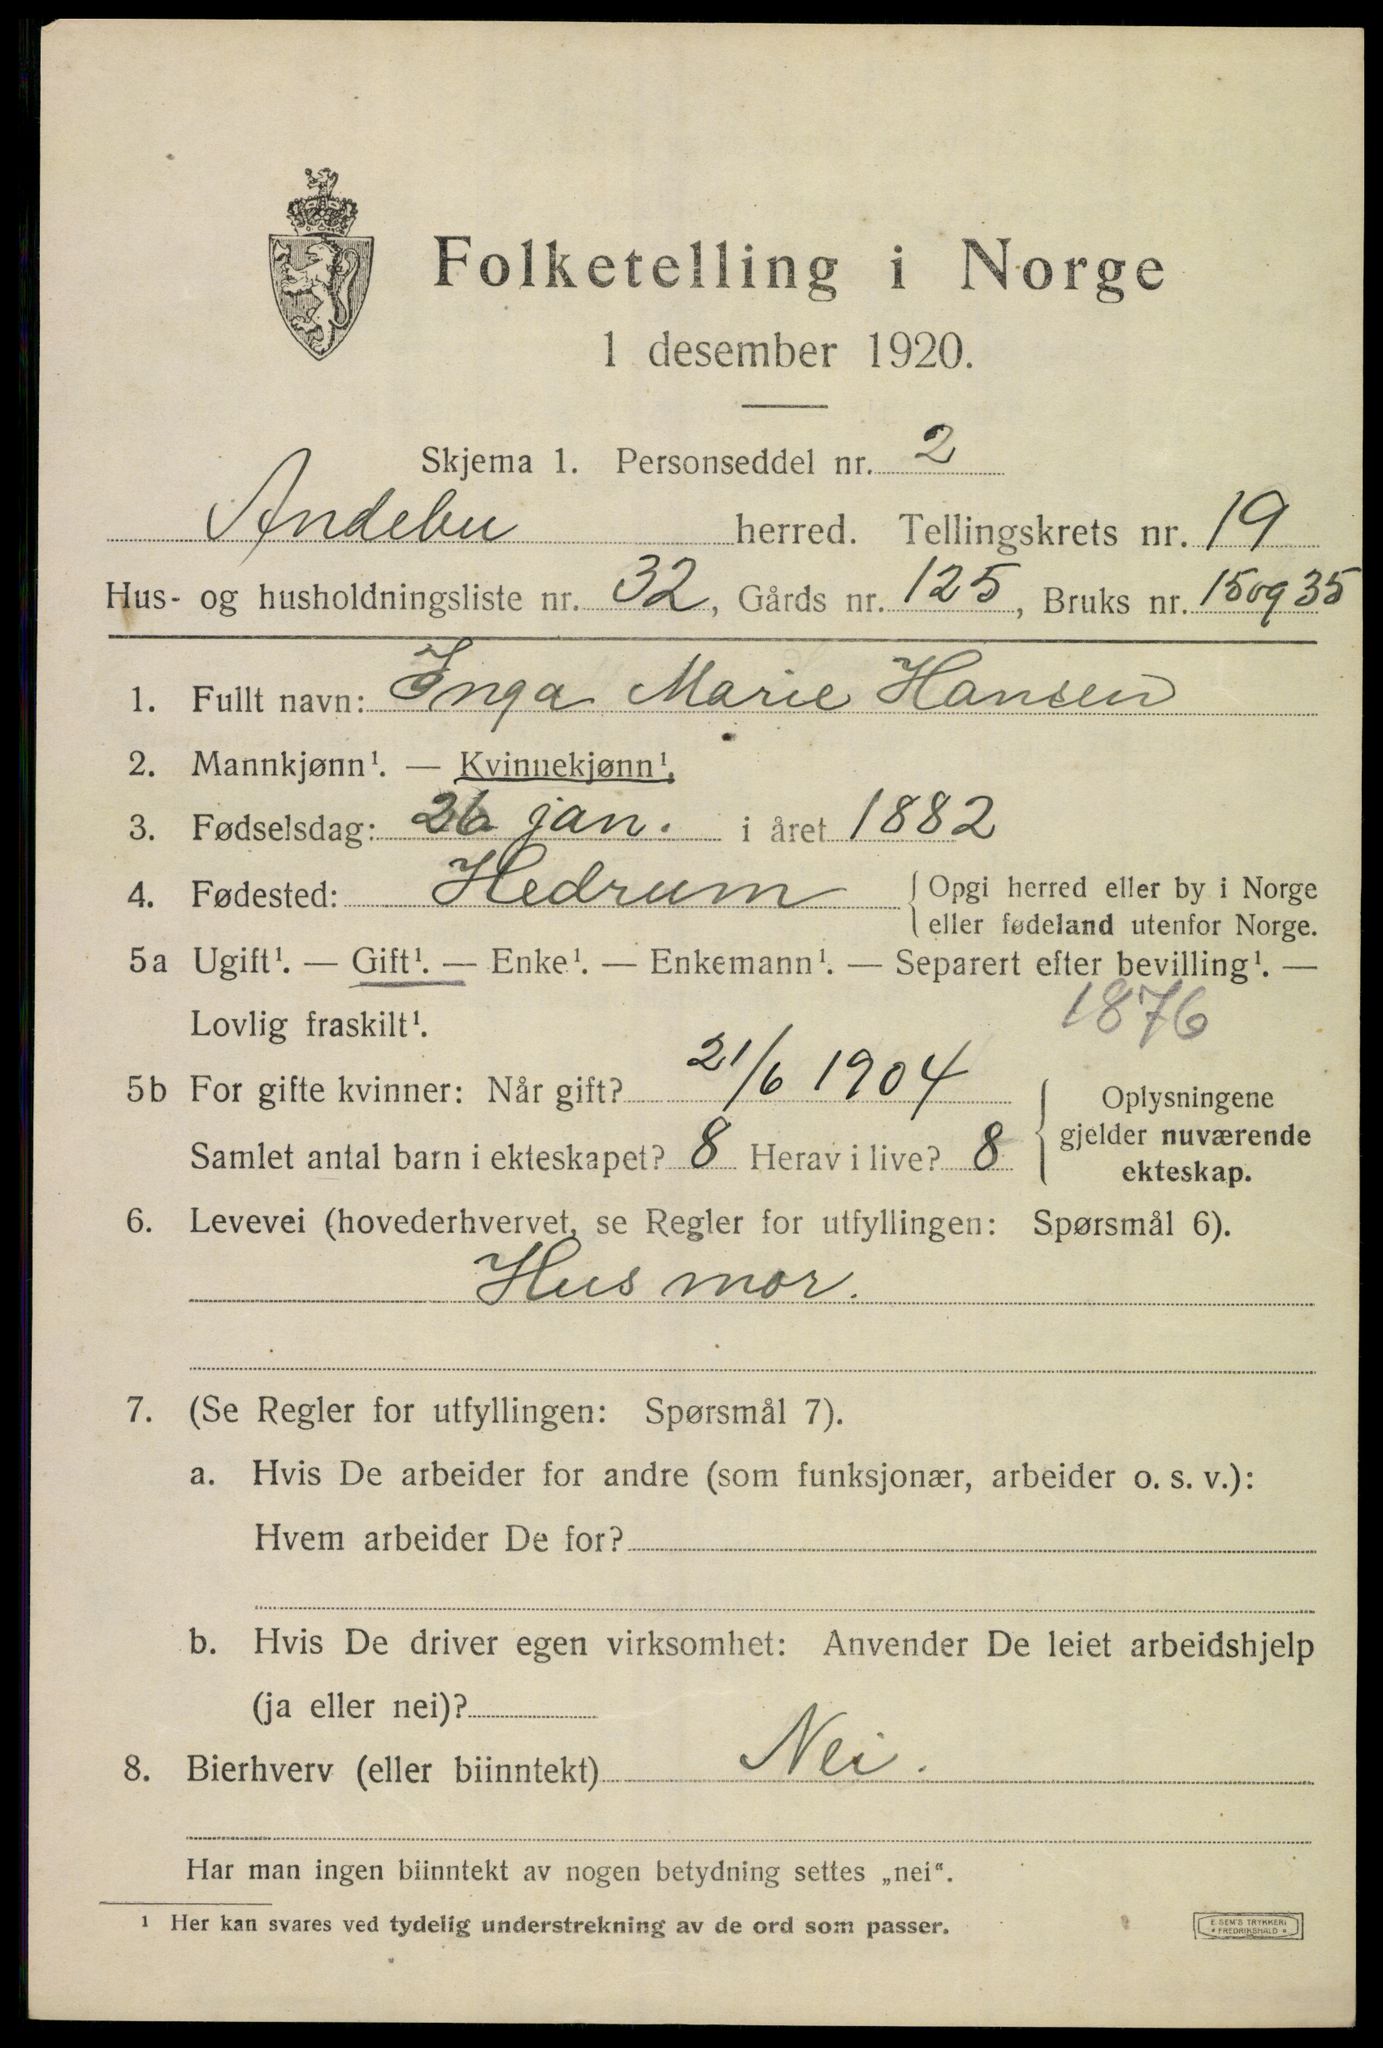 Folketelling i Norge
1 desember 1920.
Skjema 1. Personseddel nr. 2
Andebu herred. Tellingskrets nr. 19
Hus- og husholdningsliste nr. 32, Gårds nr. 125, Bruks nr. 15 og 35
1. Fullt navn: Inga Marie Hansen
2. Mannkjønn¹. — Kvinnekjønn¹.
3. Fødselsdag: 26 jan. i året 1882
4. Fødested: Hedrum { Opgi herred eller by i Norge
eller fødeland utenfor Norge.
5a Ugift¹. — Gift¹. — Enke¹. — Enkemann¹. — Separert efter bevilling¹. —
Lovlig fraskilt¹. 1876
5b For gifte kvinner: Når gift? 21/6 1904 { Oplysningene
gjelder nuværende
ekteskap.
Samlet antal barn i ekteskapet? 8 Herav i live? 8
6. Levevei (hovederhvervet, se Regler for utfyllingen: Spørsmål 6).
Husmor.
7. (Se Regler for utfyllingen: Spørsmål 7).
a. Hvis De arbeider for andre (som funksjonær, arbeider o. s. v.):
Hvem arbeider De for?
b. Hvis De driver egen virksomhet: Anvender De leiet arbeidshjelp
(ja eller nei)?
8. Bierhverv (eller biinntekt) Nei.
Har man ingen biinntekt av nogen betydning settes „nei“.
¹ Her kan svares ved tydelig understrekning av de ord som passer.
E. SEM'S TRYKKERI
* FREDRIKSHALD *